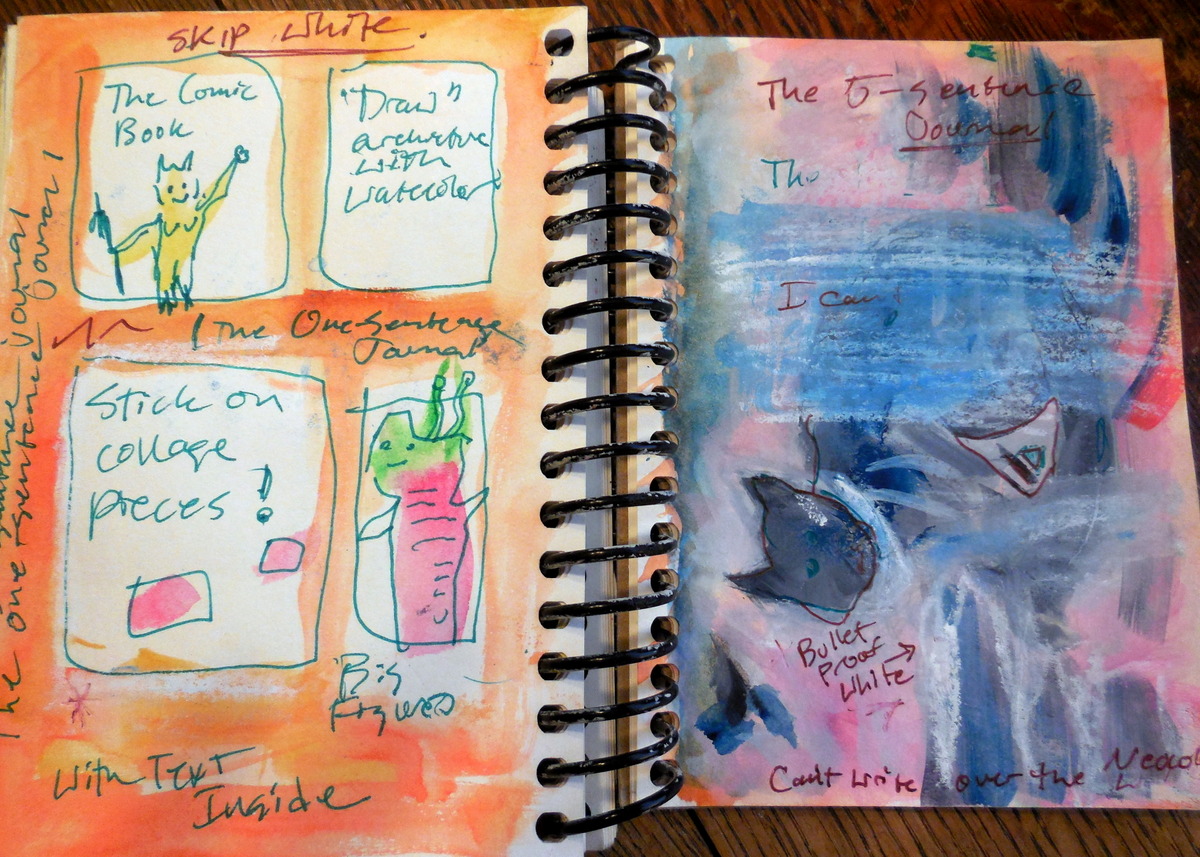 Skip White.
The Comic
Book
"Draw"
with
watecolor
The One-Sentence
Journal
The one sentence journal
Stick on
collage
pieces!
Big
Figures
With Text
Inside
The 5-Sentence
Journal
The
I can
Bullet
Proof
White
Can't write over the